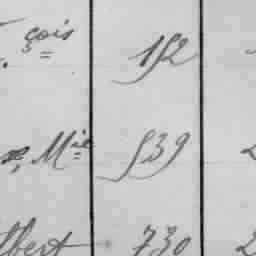 çois 152
Mie 539
lbert 730 2